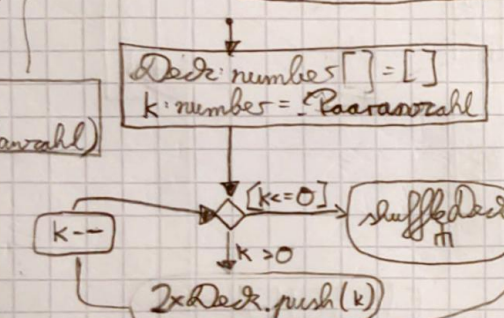 Deck: number[] = []
k: number = Paaranzahl
anzahl)
[k<=0]
shuffleDeck
k--
k >0
2xDeck.push(k)